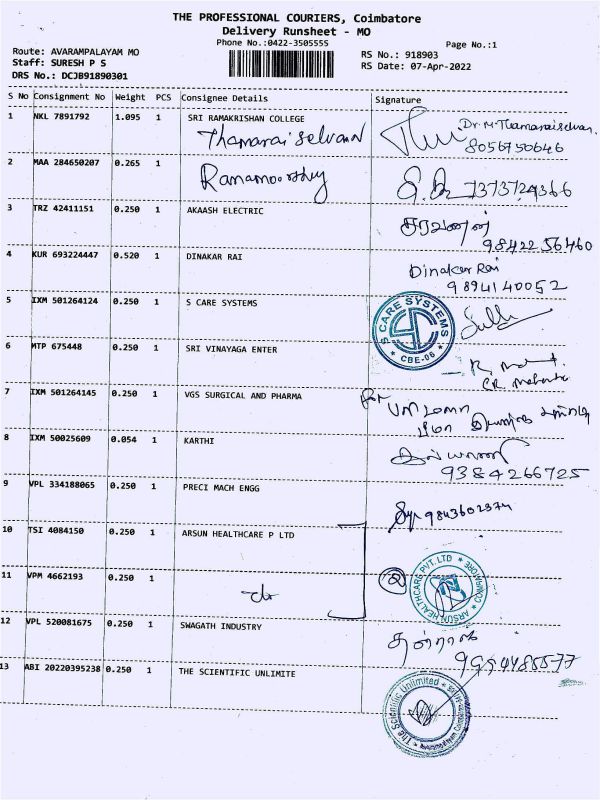 THE PROFESSIONAL COURIERS, Coimbatore
Delivery Runsheet - MO
Phone No.:0422-3505555
Page No.:1
Route: AVARAMPALAYAM MO
RS No.: 918903
Staff: SURESH P S
RS Date: 07-Apr-2022
DRS No.: DCJB91890301
S No Consignment No Weight PCS Consignee Details Signature
1 NKL 7891792 1.095 1 SRI RAMAKRISHAN COLLEGE
Thamarai Selvan Dr. M. Thamaraiselvan
8056750646
2 MAA 284650207 0.265 1
Ramamoorthy 7373724366
3 TRZ 42411151 0.250 1 AKAASH ELECTRIC
சரவணன்
9842256460
4 KUR 693224447 0.520 1 DINAKAR RAI
Dinakar Rai
9894140052
5 IXM 501264124 0.250 1 S CARE SYSTEMS
S CARE SYSTEMS
CBE-06
6 MTP 675448 0.250 1 SRI VINAYAGA ENTER
7 IXM 501264145 0.250 1 VGS SURGICAL AND PHARMA
8 IXM 50025609 0.054 1 KARTHI
9384266725
9 VPL 334188065 0.250 1 PRECI MACH ENGG
9843602374
10 TSI 4084150 0.250 1 ARSUN HEALTHCARE P LTD
11 VPM 4662193 0.250 1
2
ARSUN HEALTHCARE PVT. LTD
COIMBATORE
12 VPL 520081675 0.250 1 SWAGATH INDUSTRY
13 ABI 20220395238 0.250 1 THE SCIENTIFIC UNLIMITE
The Scientific Unlimited